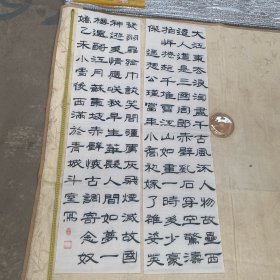 大江東去浪淘盡千古風流人物故壘西
邊人道是三國周郎赤壁亂石穿空驚濤
拍岸捲起千堆雪江山如畫一時多少豪
傑遙想公瑾當年小喬初嫁了雄姿英
發羽扇綸巾談笑間檣櫓灰飛煙滅故國
神遊多情應笑我早生華髮人間如夢一
樽還酹江月蘇東坡赤壁懷古調寄念奴
嬌乙未小雪後西滿於青城斗室寫